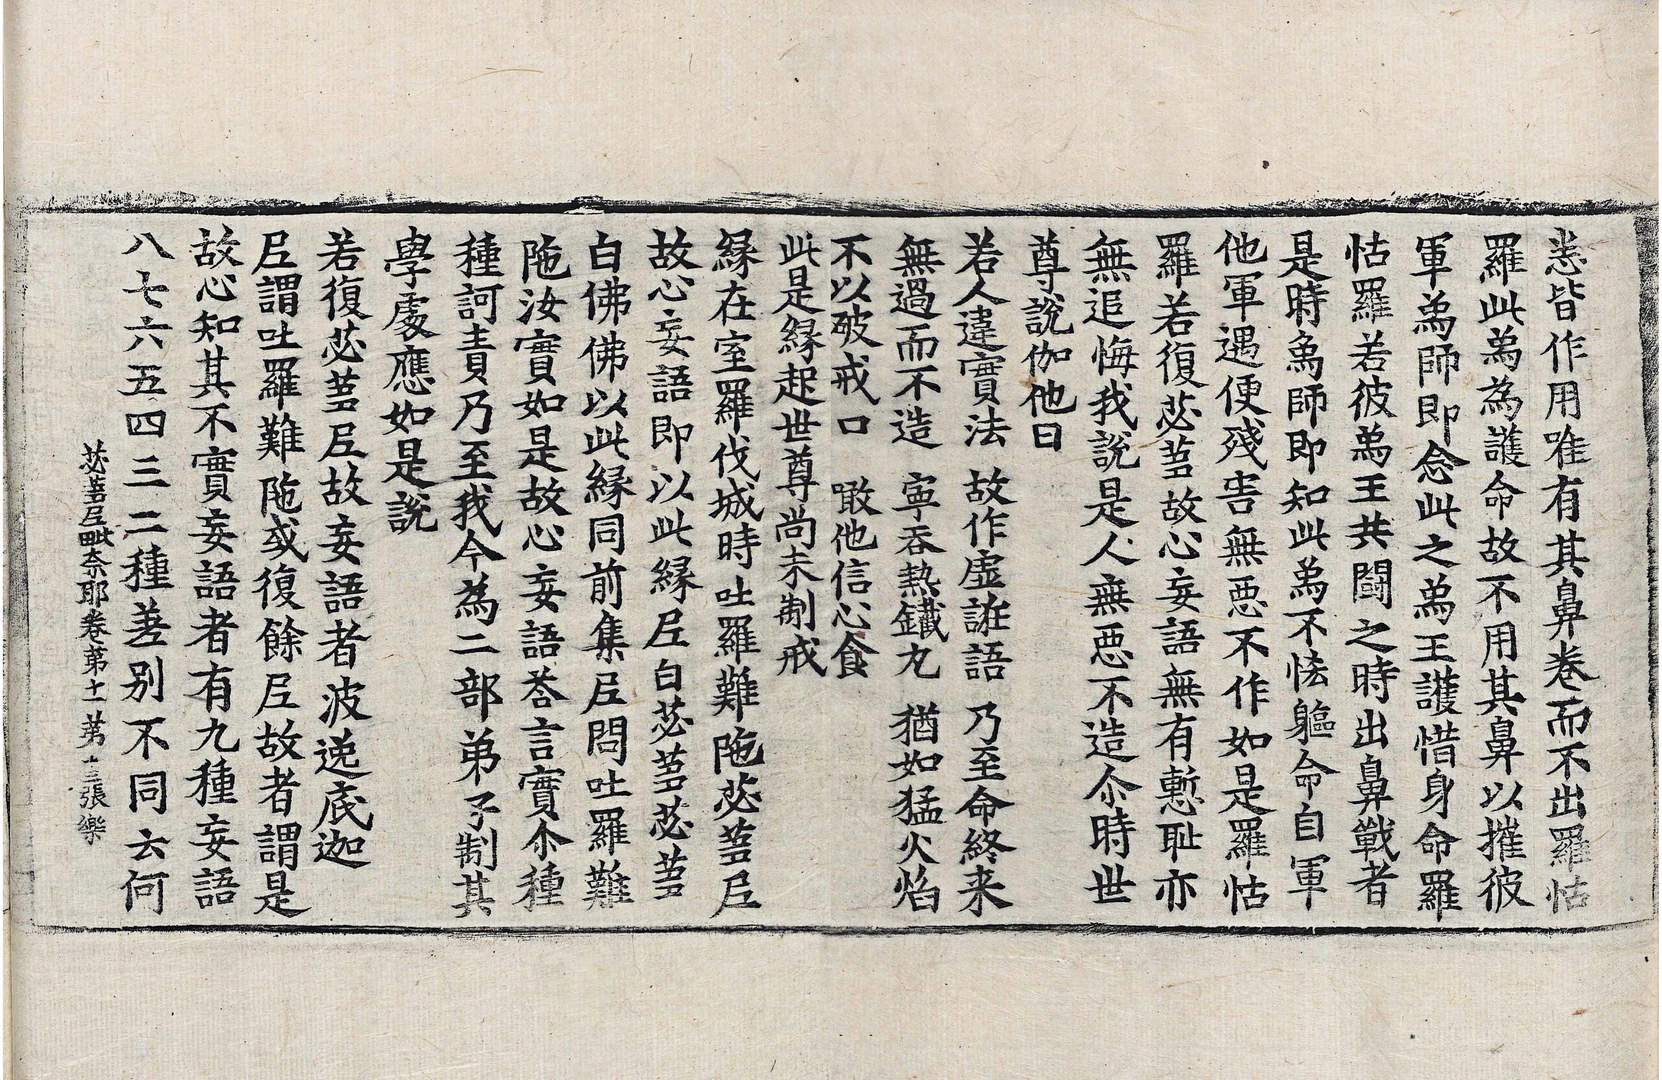 悉皆作用唯有其鼻卷而不出羅怙
羅此爲為護命故不用其鼻以摧彼
軍爲師即念此之爲王護惜身命羅
怙羅若彼爲王共鬪之時出鼻戰者
是時爲師即知此爲不恡軀命自軍
他軍遇便殘害無惡不作如是羅怙
羅若復苾芻故心妄語無有慙恥亦
無追悔我說是人無惡不造尒時世
尊說伽他曰
若人違實法 故作虛誑語 乃至命終来
無過而不造 寧吞熱鐵丸 猶如猛火焰
不以破戒口 噉他信心食
此是緣起世尊尚未制戒
緣在室羅伐城時吐羅難陁苾芻尼
故心妄語即以此緣尼白苾芻苾芻
白佛佛以此緣同前集尼問吐羅難
陁汝實如是故心妄語荅言實尒種
種訶責乃至我今為二部弟子制其
學處應如是說
若復苾芻尼故妄語者波逸底迦
尼謂吐羅難陁或復餘尼故者謂是
故心知其不實妄語者有九種妄語
八七六五四三二種差別不同云何
苾芻尼毗奈耶卷第十一 第十三張 樂